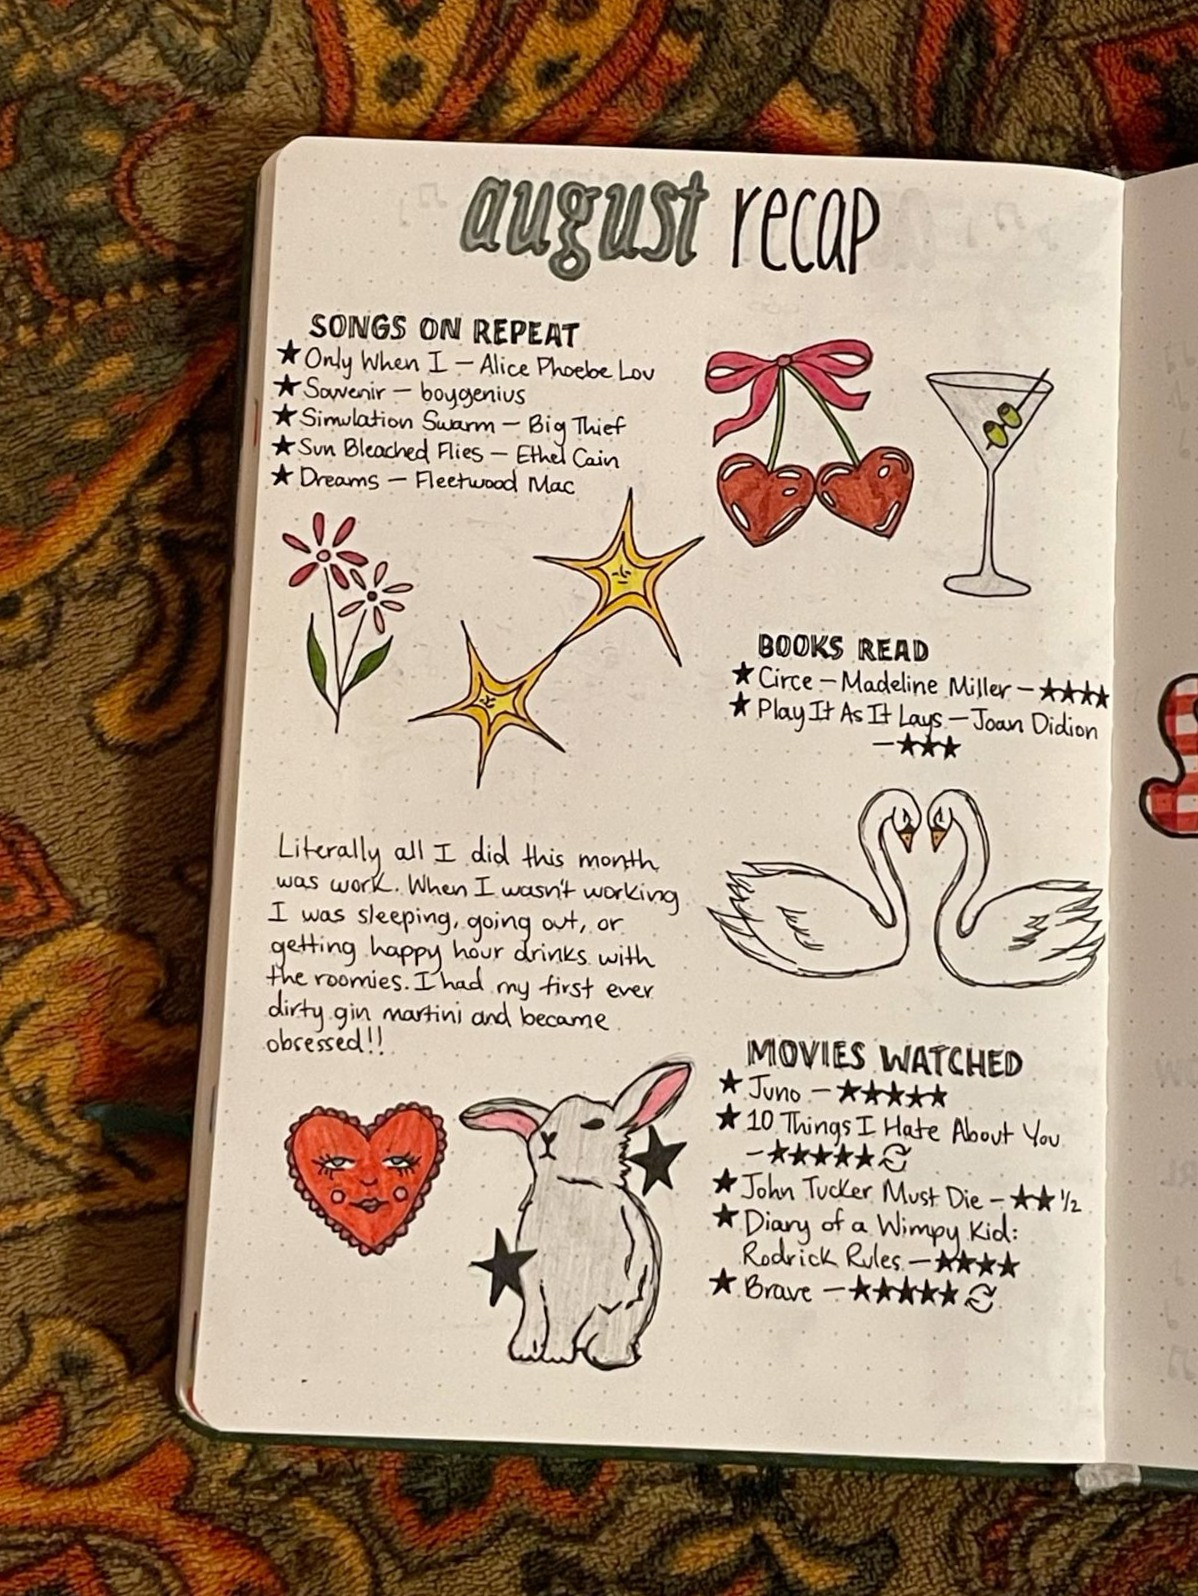 august recap
SONGS ON REPEAT
★ Only When I – Alice Phoebe Lou
★ Souvenir – boygenius
★ Simulation Swarm – Big Thief
★ Sun Bleached Flies – Ethel Cain
★ Dreams – Fleetwood Mac
BOOKS READ
★ Circe – Madeline Miller – ★★★★
★ Play It As It Lays – Joan Didion
– ★★★
Literally all I did this month
was work. When I wasn't working
I was sleeping, going out, or
getting happy hour drinks with
the roomies. I had my first ever
dirty gin martini and became
obsessed!!
MOVIES WATCHED
★ Juno – ★★★★★
★ 10 Things I Hate About You
– ★★★★★ 🗘
★ John Tucker Must Die – ★★ 1/2
★ Diary of a Wimpy Kid:
Rodrick Rules – ★★★★
★ Brave – ★★★★★ 🗘